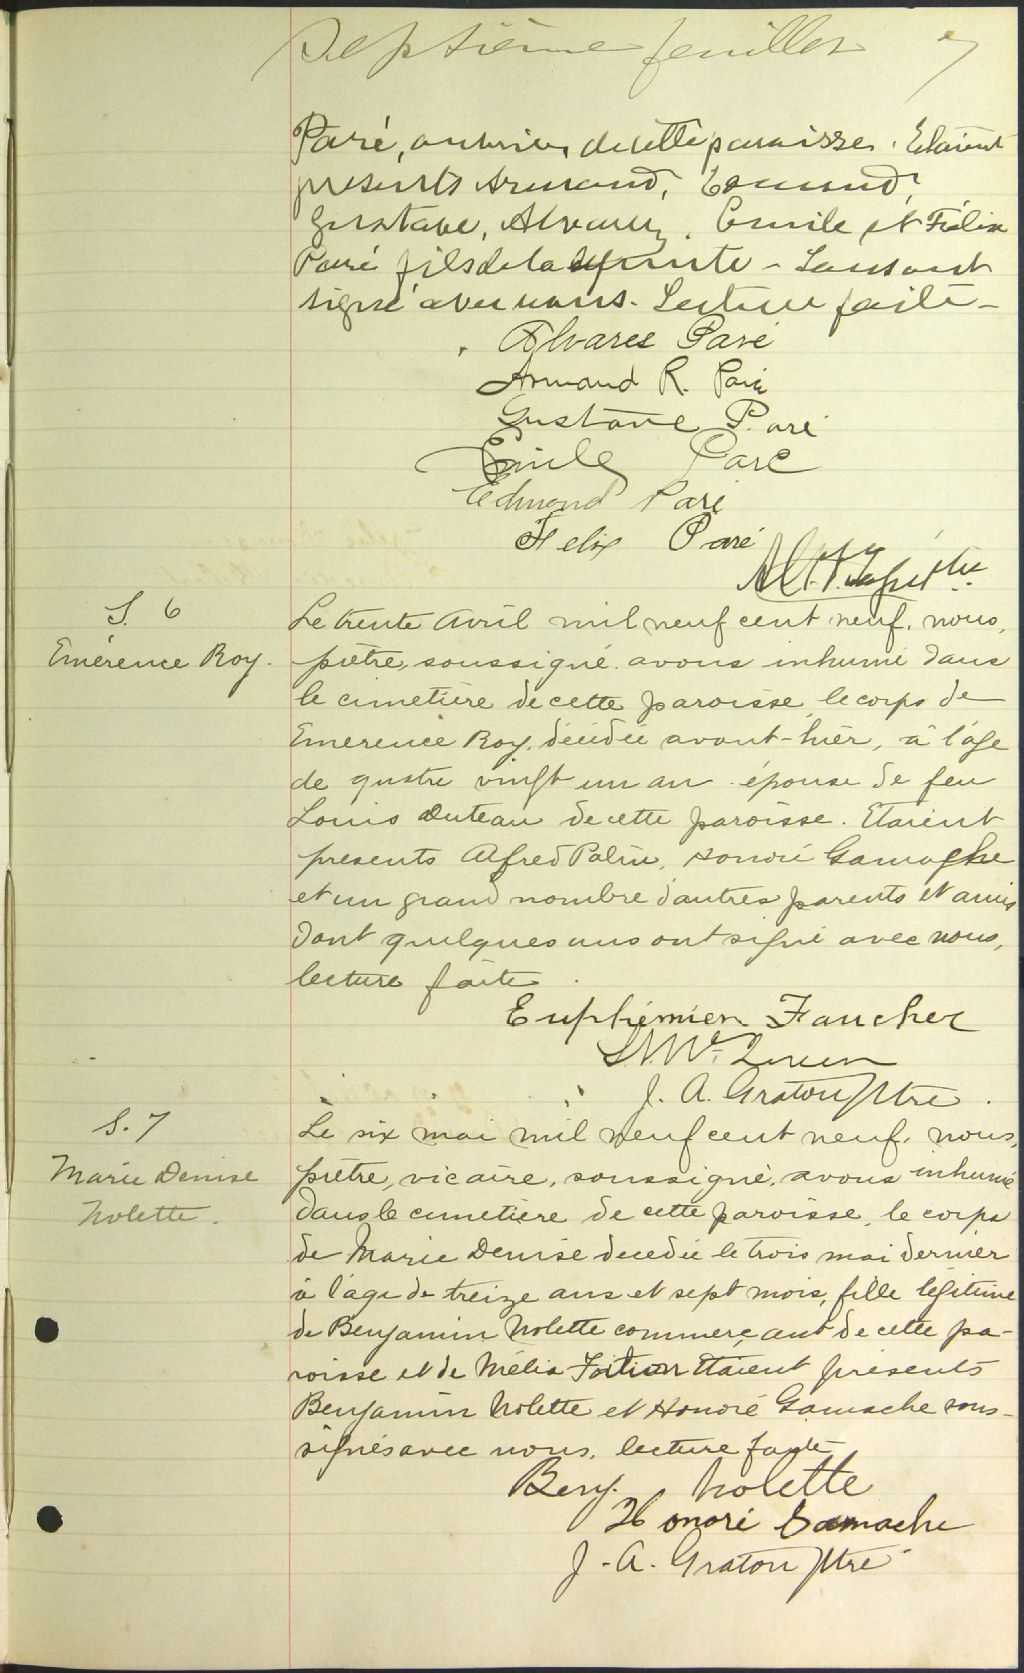 Septième feuillet 7
Paré, ouvrier, de cette paroisse. Etaient
présents Armand, Edmond,
Gustave, Alvarez, Emile et Félix
Paré fils de la défunte - Tous ont
signé avec nous. Lecture faite -
Alvares Paré
Armand R. Paré
Gustave Paré
Emile Paré
Edmond Paré
Felix Paré
S. 6
Emérence Roy.
Le trente Avril mil neuf cent neuf, nous,
prêtre, soussigné avons inhumé dans
le cimetière de cette paroisse, le corps de
Emerence Roy, décédée avant-hier, à l'âge
de quatre vingt un an épouse de feu
Louis Duteau de cette paroisse. Etaient
presents Alfred Patin, Honoré Gamache
et un grand nombre d'autres parents et amis
dont quelques uns ont signé avec nous,
lecture faite.
Euphémien Faucher
J. A. Graton Ptre.
S. 7
Marie Denise
Nolette.
Le six mai mil neuf cent neuf, nous,
prêtre, vicaire, soussigné, avons inhumé
dans le cimetière de cette paroisse, le corps
de Marie Denise decedée le trois mai dernier
à l'age de treize ans et sept mois, fille légitime
de Benjamin Nolette commerçant de cette pa-
roisse et de Mélia Etaient présents
Benjamin Nolette et Honoré Gamache sous-
signés avec nous, lecture faite
Benj. Nolette
Honoré Gamache
J. A. Graton Ptre